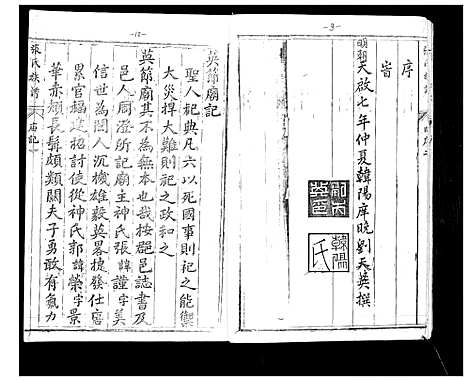 -9-
序
旹
明朝天啟七年仲夏韓陽岸曉劉天英撰
韓陽
氏
-10-
張氏族譜
廟記
英節廟記
聖人祀典凡六以死國事則祀之能禦
大災捍大難則祀之政和之
英節廟其不為無本也哉按郡邑誌書及
邑人周澄所記廟主神氏張諱謹字美
信世為閩人沉機雄毅英畧捷發仕唐
累官福建招討使從神氏郭諱榮字景
華赤頰長髯頗類關夫子勇敢有氣力